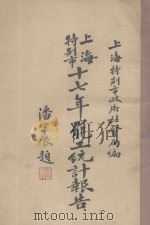 上海特別市政府社會局編
上海特別市
十七年罷工統計報告
潘公展題